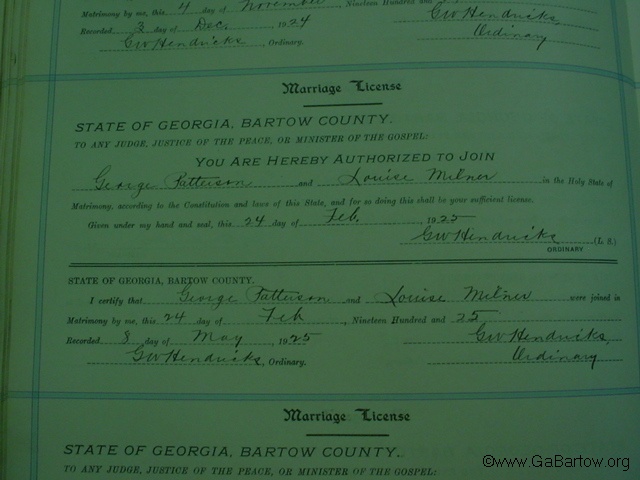 Matrimony by me, this 4 day of November, Nineteen Hundred and
Recorded 3 day of Dec. 1924 GW Hendricks
GW Hendricks, Ordinary. Ordinary
Marriage License
STATE OF GEORGIA, BARTOW COUNTY.
TO ANY JUDGE, JUSTICE OF THE PEACE, OR MINISTER OF THE GOSPEL:
YOU ARE HEREBY AUTHORIZED TO JOIN
George Patterson and Louise Milner in the Holy State of
Matrimony, according to the Constitution and laws of this State, and for so doing this shall be your sufficient license.
Given under my hand and seal, this 24 day of Feb 1925
GW Hendricks (L. S.)
ORDINARY
STATE OF GEORGIA, BARTOW COUNTY.
I certify that George Patterson and Louise Milner were joined in
Matrimony by me, this 24 day of Feb, Nineteen Hundred and 25
Recorded 8 day of May, 1925 GW Hendricks,
GW Hendricks, Ordinary. Ordinary
Marriage License
STATE OF GEORGIA, BARTOW COUNTY.
TO ANY JUDGE, JUSTICE OF THE PEACE, OR MINISTER OF THE GOSPEL:
©www.GaBartow.org